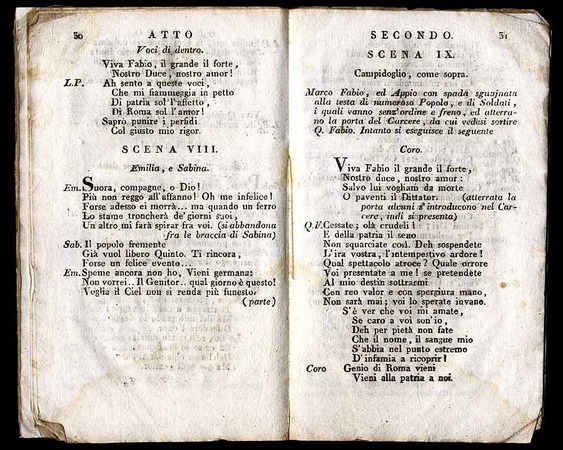 30
ATTO
Voci di dentro.
Viva Fabio, il grande il forte,
Nostro Duce, nostro amor!
L.P. Ah sento a queste voci,
Che mi fiammeggia in petto
Di patria sol l'affetto,
Di Roma sol l'amor!
Saprò punire i perfidi
Col giusto mio rigor.
SCENA VIII.
Emilia, e Sabina.
Em. Suora, compagne, o Dio!
Più non reggo all'affanno! Oh me infelice!
Forse adesso ei morrà... ma quando un ferro
Lo stame troncherà de' giorni suoi,
Un altro mi farà spirar fra voi. (si abbandona
fra le braccia di Sabina)
Sab. Il popolo fremente
Già vuol libero Quinto. Ti rincora,
Forse un felice evento...
Em. Speme ancora non ho, Vieni germana:
Non vorrei.. Il Genitor.. qual giorno è questo!
Voglia il Ciel non si renda più funesto.
(parte)
SECONDO.
31
SCENA IX.
Campidoglio, come sopra.
Marco Fabio, ed Appio con spada sguainata
alla testa di numeroso Popolo, e di Soldati,
i quali vanno senz'ordine e freno, ed atterra-
no la porta del Carcere, da cui vedesi sortire
Q. Fabio. Intanto si eseguisce il seguente
Coro.
Viva Fabio il grande il forte,
Nostro duce, nostro amor:
Salvo lui vogliam da morte
O paventi il Dittator. (atterrata la
porta alcuni s'introducono nel Car-
cere, indi si presenta)
Q.F. Cessate; olà crudeli!
E della patria il seno
Non squarciate così. Deh sospendete
L'ira vostra, l'intempestivo ardore!
Qual spettacolo atroce? Quale orrore
Voi presentate a me! se pretendete
Al mio destin sottrarmi
Con reo valor e con spergiura mano,
Non sarà mai; voi lo sperate invano.
S'è ver che voi mi amate,
Se caro a voi son'io,
Deh per pietà non fate
Che il nome, il sangue mio
S'abbia nel punto estremo
D'infamia a ricoprir!
Coro Genio di Roma vieni
Vieni alla patria a noi.